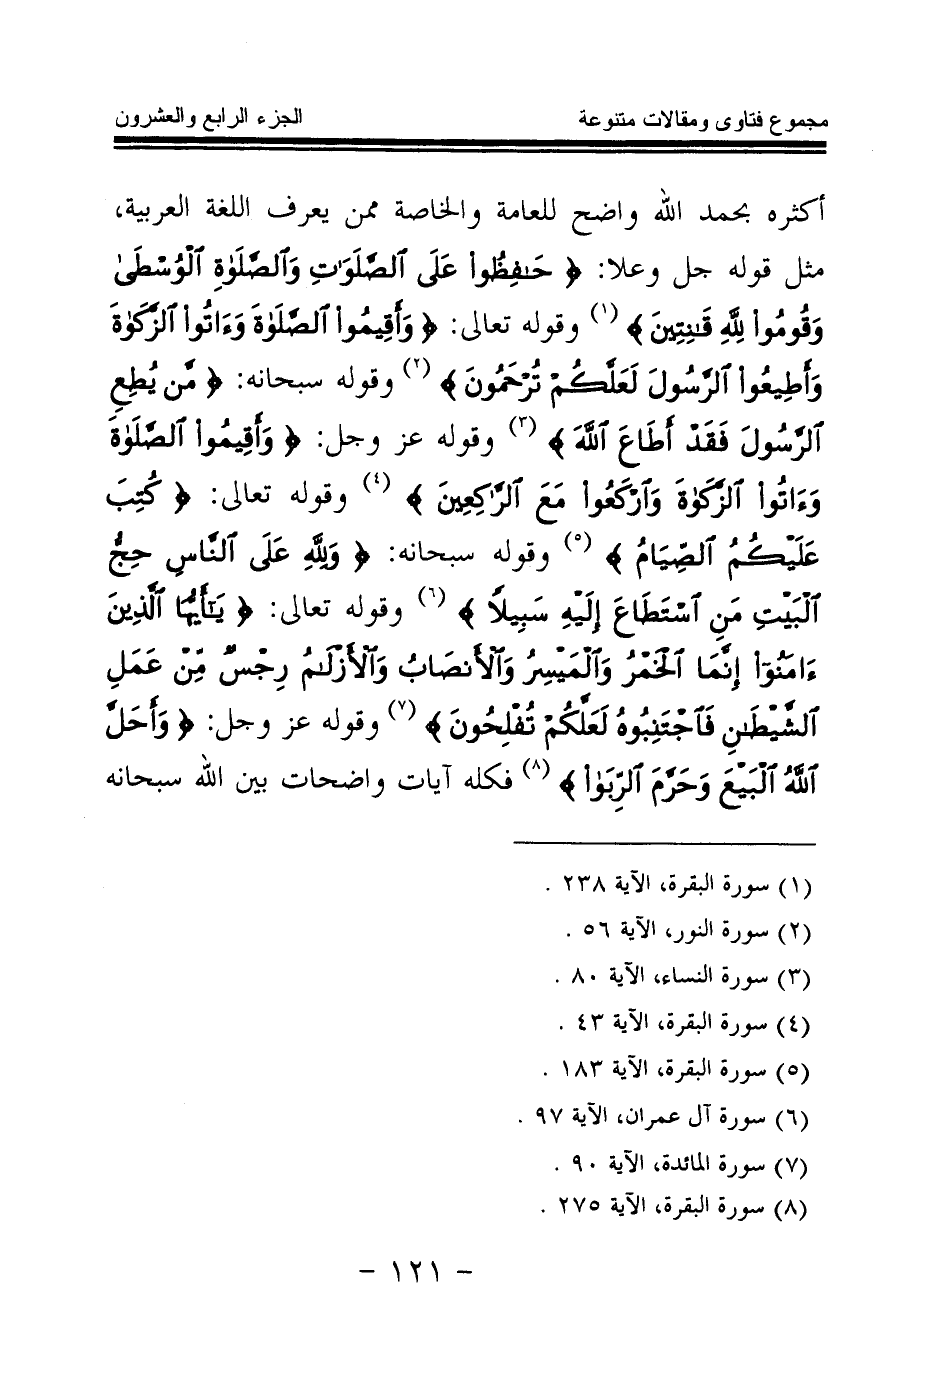 مجموع فتاوى ومقالات متنوعة الجزء الرابع والعشرون
أكثره بحمد الله واضح للعامة والخاصة ممن يعرف اللغة العربية،
مثل قوله جل وعلا: ﴿ حَـٰفِظُوا۟ عَلَى ٱلصَّلَوَٰتِ وَٱلصَّلَوٰةِ ٱلْوُسْطَىٰ
وَقُومُوا۟ لِلَّهِ قَـٰنِتِينَ ﴾ (١) وقوله تعالى: ﴿ وَأَقِيمُوا۟ ٱلصَّلَوٰةَ وَءَاتُوا۟ ٱلزَّكَوٰةَ
وَأَطِيعُوا۟ ٱلرَّسُولَ لَعَلَّكُمْ تُرْحَمُونَ ﴾ (٢) وقوله سبحانه: ﴿ مَّن يُطِعِ
ٱلرَّسُولَ فَقَدْ أَطَاعَ ٱللَّهَ ﴾ (٣) وقوله عز وجل: ﴿ وَأَقِيمُوا۟ ٱلصَّلَوٰةَ
وَءَاتُوا۟ ٱلزَّكَوٰةَ وَٱرْكَعُوا۟ مَعَ ٱلرَّٰكِعِينَ ﴾ (٤) وقوله تعالى: ﴿ كُتِبَ
عَلَيْكُمُ ٱلصِّيَامُ ﴾ (٥) وقوله سبحانه: ﴿ وَلِلَّهِ عَلَى ٱلنَّاسِ حِجُّ
ٱلْبَيْتِ مَنِ ٱسْتَطَاعَ إِلَيْهِ سَبِيلًا ﴾ (٦) وقوله تعالى: ﴿ يَـٰٓأَيُّهَا ٱلَّذِينَ
ءَامَنُوٓا۟ إِنَّمَا ٱلْخَمْرُ وَٱلْمَيْسِرُ وَٱلْأَنصَابُ وَٱلْأَزْلَـٰمُ رِجْسٌ مِّنْ عَمَلِ
ٱلشَّيْطَـٰنِ فَٱجْتَنِبُوهُ لَعَلَّكُمْ تُفْلِحُونَ ﴾ (٧) وقوله عز وجل: ﴿ وَأَحَلَّ
ٱللَّهُ ٱلْبَيْعَ وَحَرَّمَ ٱلرِّبَوٰا۟ ﴾ (٨) فكله آيات واضحات بين الله سبحانه
(١) سورة البقرة، الآية ٢٣٨ .
(٢) سورة النور، الآية ٥٦ .
(٣) سورة النساء، الآية ٨٠ .
(٤) سورة البقرة، الآية ٤٣ .
(٥) سورة البقرة، الآية ١٨٣ .
(٦) سورة آل عمران، الآية ٩٧ .
(٧) سورة المائدة، الآية ٩٠ .
(٨) سورة البقرة، الآية ٢٧٥ .
- ١٢١ -